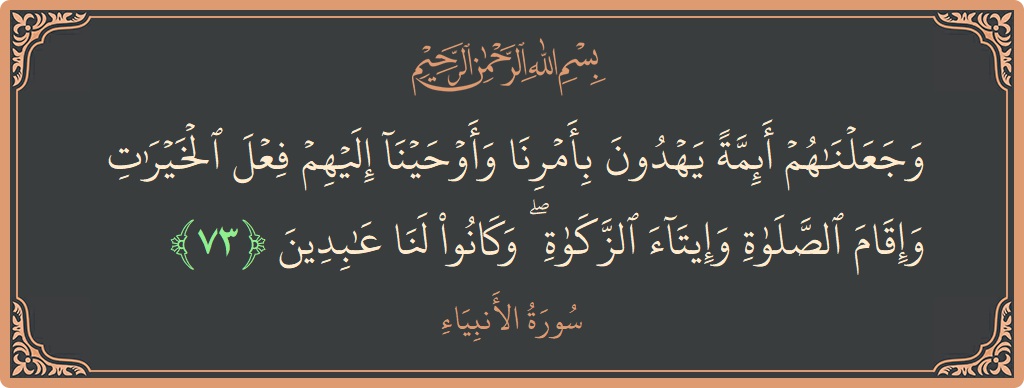 بِسْمِ اللهِ الرَّحْمٰنِ الرَّحِيْمِ
وَجَعَلْنَـٰهُمْ أَئِمَّةً يَهْدُونَ بِأَمْرِنَا وَأَوْحَيْنَآ إِلَيْهِمْ فِعْلَ ٱلْخَيْرَٰتِ
وَإِقَامَ ٱلصَّلَوٰةِ وَإِيتَآءَ ٱلزَّكَوٰةِ ۖ وَكَانُوا۟ لَنَا عَـٰبِدِينَ ﴿٧٣﴾
سُورَةُ الأَنبِيَاءِ